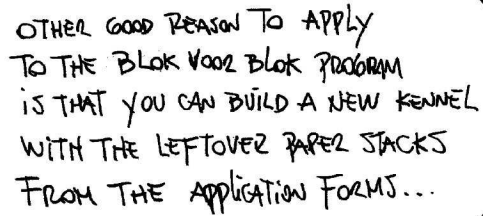 OTHER GOOD REASON TO APPLY
TO THE BLOK VOOR BLOK PROGRAM
iS THAT YOU CAN BUiLD A NEW KENNEL
WiTH THE LEFTOVER PAPER STACKS
FROM THE APPLiCATiON FORMS...